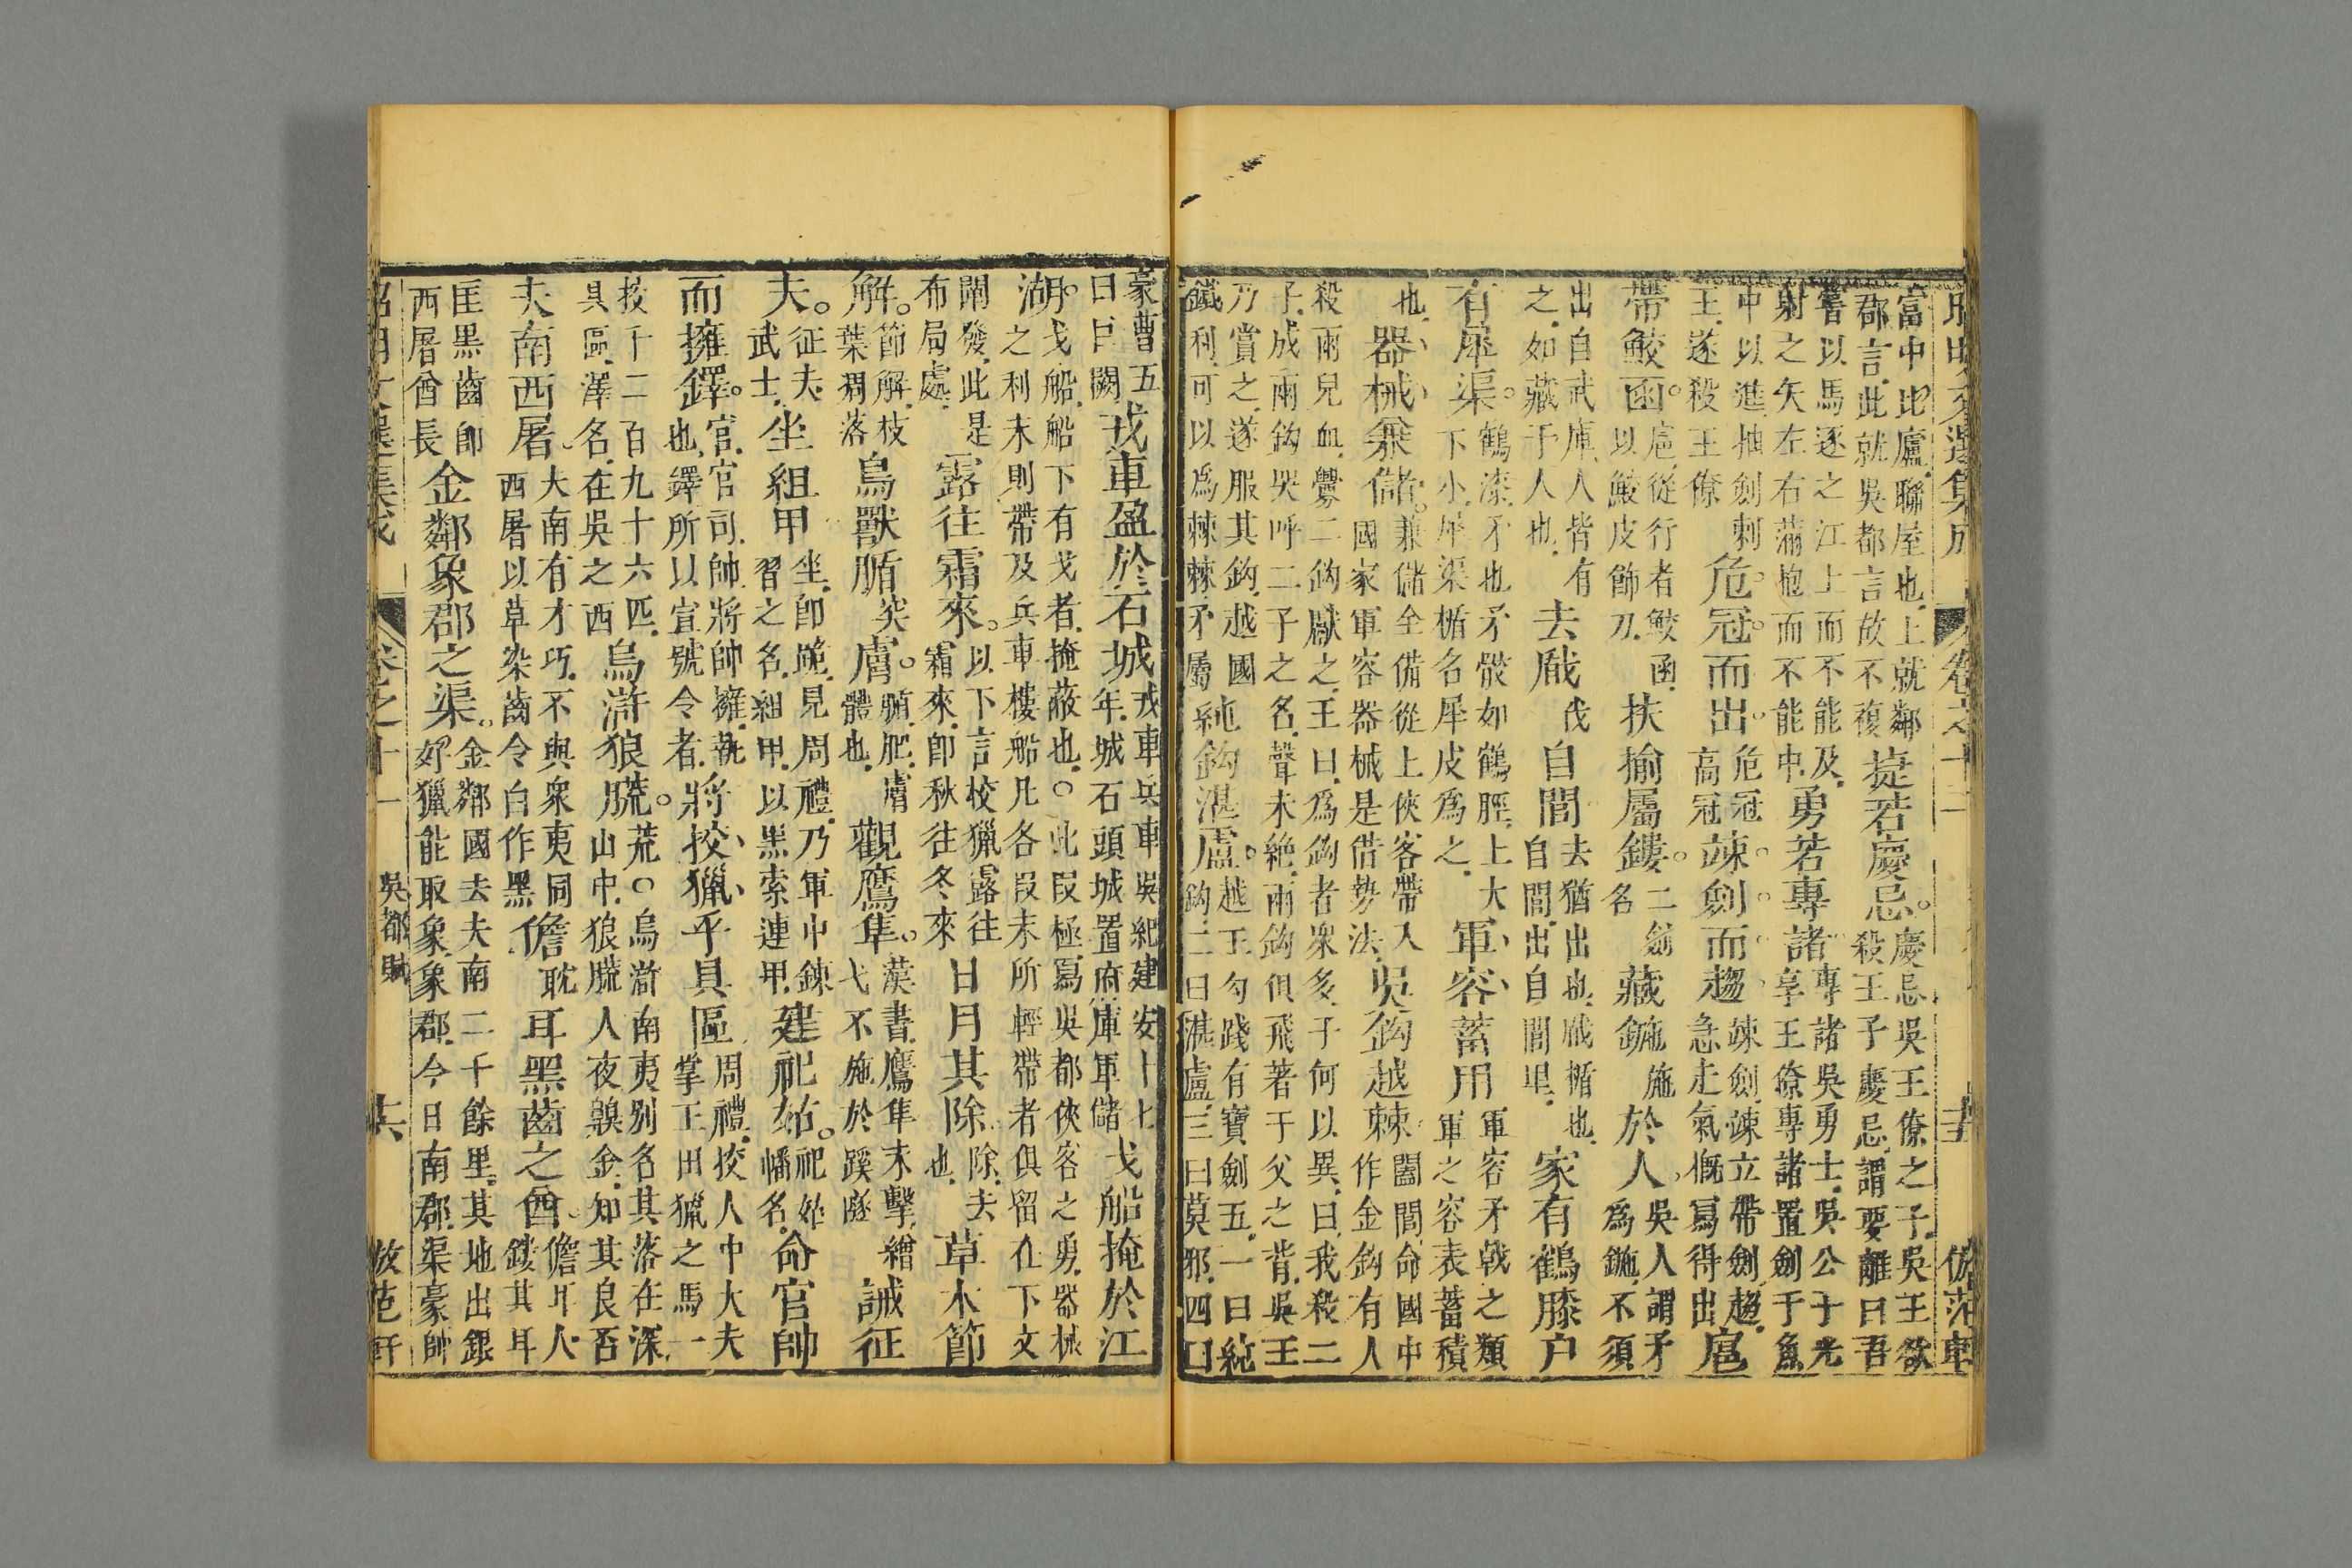 昭明文選集成 卷之十二 十五 倣范軒
富中比廬聯屋也上就鄰
郡言此就吳都言故不複
捷若慶忌慶忌吳王僚之子吳王欲
殺王子慶忌謂要離曰吾
嘗以馬逐之江上而不能及
射之矢左右滿抱而不能中
勇若專諸專諸吳勇士吳公子光
享王僚專諸置劍于魚
中以進抽劍刺
王遂殺王僚
危冠而出危冠
高冠
竦劍而趨竦劍竦立帶劍趨
急走氣慨寫得出
扈
帶鮫函扈從行者鮫函
以鮫皮飾刀
扶揄屬鏤二劍
名
藏鍦施於人吳人謂矛
爲鍦不須
出自武庫人皆有
之如藏于人也
去𢧕伐
自閭去猶出也𢧕楯也
自閭出自閭里
家有鶴膝戶
有犀渠鶴漆矛也矛骹如鶴脛上大
下小犀渠楯名犀皮爲之
軍容蓄用軍容矛戟之類
軍之容表蓄積
也
器械兼儲兼儲全備從上俠客帶入
國家軍容器械是借勢法
吳鈎越棘闔閭命國中
作金鈎有人
殺兩兒血釁二鈎獻之王曰爲鈎者衆多子何以異曰我殺二
子成兩鈎哭呼二子之名聲未絶兩鈎俱飛著于父之背吳王
乃賞之遂服其鈎越國
鐵利可以爲棘棘矛屬
純鈎湛盧越王勾踐有寶劍五一曰純
鈎二曰湛盧三曰莫邪四曰
豪曹五
曰巨闕
戎車盈於石城戎車兵車吳紀建安十七
年城石頭城置府庫軍儲
戈船掩於江
湖戈船船下有戈者掩蔽也○此段極寫吳都俠客之勇器械
之利末則帶及兵車樓船凡各段末所輕帶者俱留在下文
開發此是
布局處
露往霜來以下言校獵露往
霜來卽秋往冬來
日月其除除去
也
草木節
解節解枝
葉凋落
鳥獸腯突
膚腯肥膚
體也
觀鷹隼漢書鷹隼未擊繒
弋不施於蹊隧
誡征
夫征夫
武士
坐組甲坐卽跪見周禮乃軍中鍊
習之名組甲以黑索連甲
建祀姑祀姑
幡名
命官帥
而擁鐸官官司帥將帥擁執
也鐸所以宣號令者
將校獵乎具區周禮校人中大夫
掌王田獵之馬一
校千二百九十六匹
具區澤名在吳之西
烏滸狼𦡀荒○烏滸南夷別名其落在深
山中狼𦡀人夜齅金知其良否
夫南西屠大南有才巧不與衆夷同
西屠以草染齒令白作黑
儋耽
耳黑齒之酋儋耳人
鏤其耳
匡黑齒卽
西屠酋長
金鄰象郡之渠金鄰國去夫南二千餘里其地出銀
好獵能取象象郡今日南郡渠豪帥
昭明文選集成 卷之十一 吳都賦 十六 倣范軒